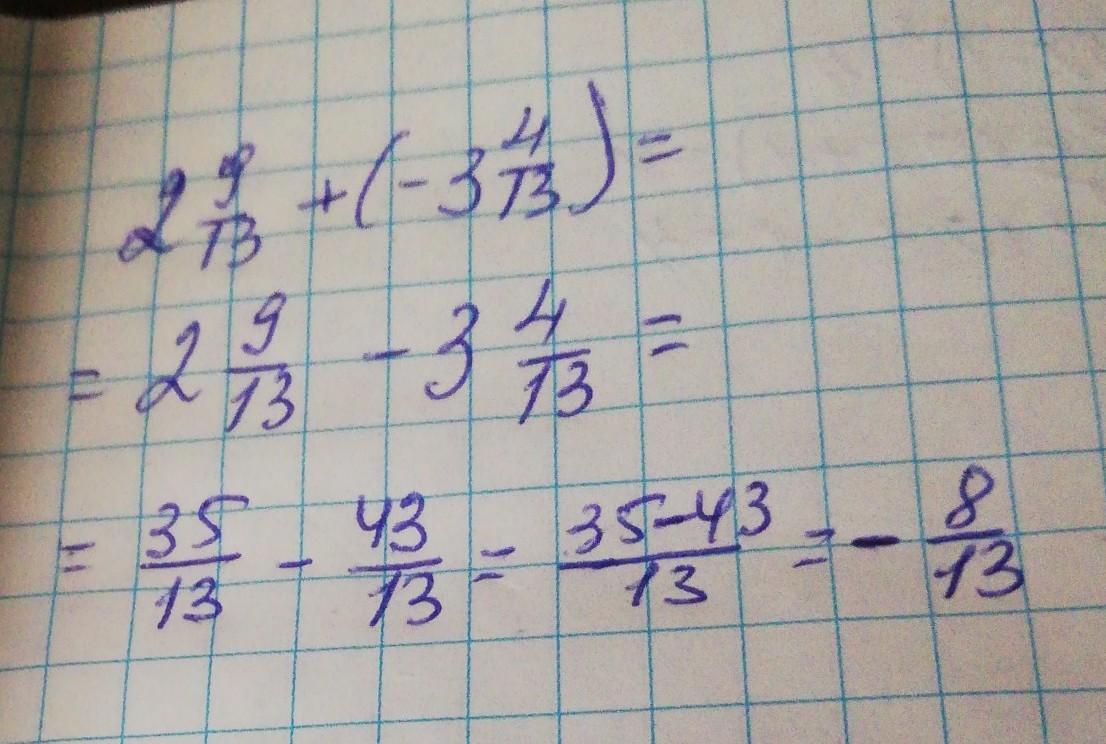 2 9/13 + (-3 4/13) =
= 2 9/13 - 3 4/13 =
= 35/13 - 43/13 = 35-43/13 = - 8/13